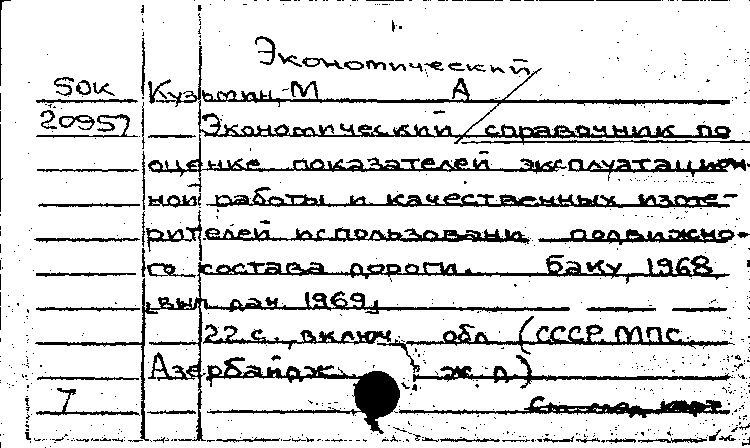 1.
Экономический
50к Кузьмин, М А
20957 Экономический справочник по
оценке показателей эксплуатацион-
ной работы и качественных изме-
рителей использовани подвижно-
го состава дороги. Баку, 1968,
[вып. дан. 1969]
22 с., включ. обл (СССР. МПС.
Азербайдж. ж. д.)
7